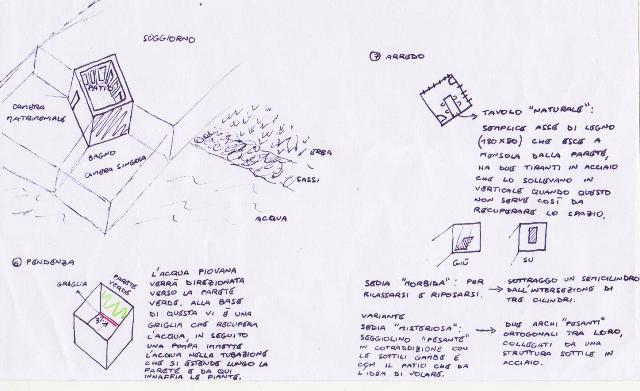 SOGGIORNO
PATIO
CAMERA
MATRIMONIALE
BAGNO
CAMERA SINGOLA
ERBA
SASSI
ACQUA
⑥ PENDENZA
GRIGLIA
PARETE
VERDE
L'ACQUA PIOVANA
VERRÀ DIREZIONATA
VERSO LA PARETE
VERDE. ALLA BASE
DI QUESTA VI È UNA
GRIGLIA CHE RECUPERA
L'ACQUA, IN SEGUITO
UNA POMPA IMMETTE
L'ACQUA NELLA TUBAZIONE
CHE SI ESTENDE LUNGO LA
PARETE E DA QUI
INNAFFIA LE PIANTE.
⑦ ARREDO
TAVOLO "NATURALE":
SEMPLICE ASSE DI LEGNO
(180X80) CHE ESCE A
MENSOLA DALLA PARETE,
HA DUE TIRANTI IN ACCIAIO
CHE LO SOLLEVANO IN
VERTICALE QUANDO QUESTO
NON SERVE COSÌ DA
RECUPERARE LO SPAZIO.
GIÙ
SU
SEDIA "MORBIDA": PER
RILASSARSI E RIPOSARSI.
SOTTRAGGO UN SEMICILINDRO
DALL'INTERSEZIONE DI
TRE CILINDRI.
VARIANTE
SEDIA "MISTERIOSA":
SEGGIOLINO "PESANTE"
IN COTRADDIZIONE CON
LE SOTTILI GAMBE E
CON IL PATIO CHE DA
L'IDEA DI VOLARE.
DUE ARCHI "PESANTI"
ORTOGONALI TRA LORO,
COLLEGATI DA UNA
STRUTTURA SOTTILE IN
ACCIAIO.